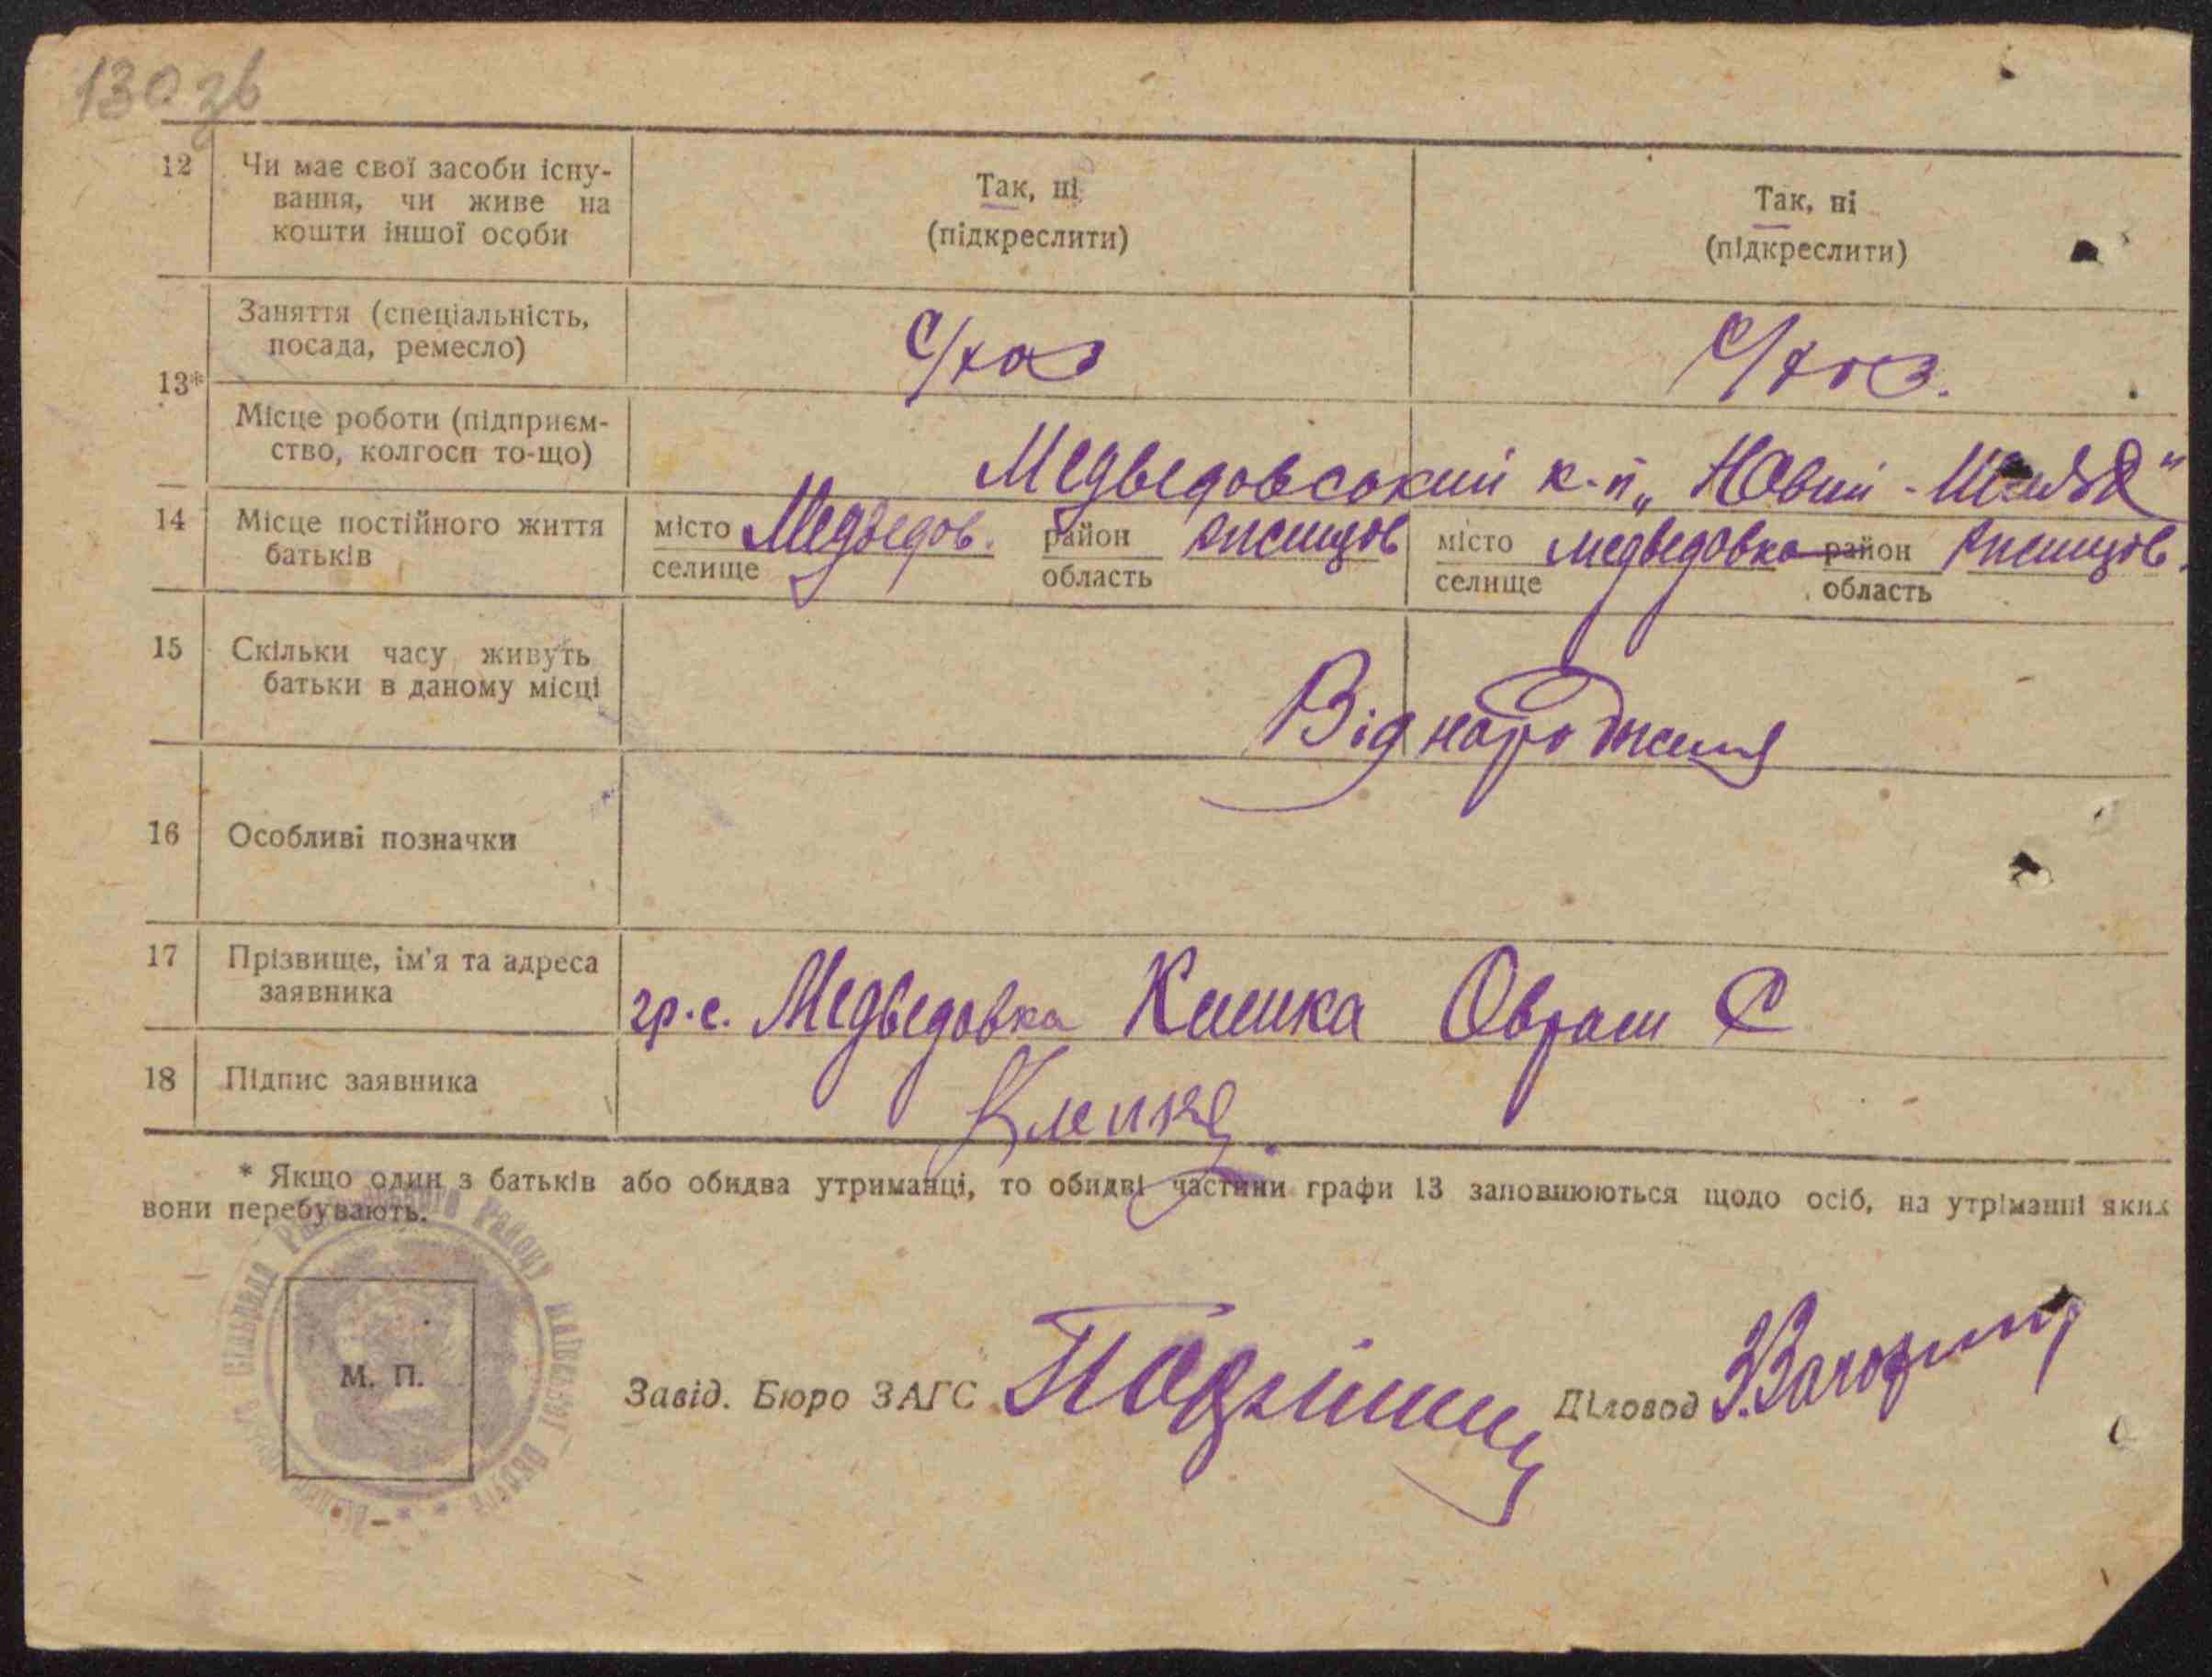 130 зв
12 Чи має свої засоби існу- Так, ні Так, ні
вання, чи живе на
кошти іншої особи (підкреслити) (підкреслити)
Заняття (спеціальність,
посада, ремесло) с/хоз с/хоз.
13*
Місце роботи (підприєм-
ство, колгосп то-що) Медведовський к-п "Новий
14 Місце постійного життя місто Медведов. район місто Медведовка район
батьків селище область селище область
15 Скільки часу живуть
батьки в даному місці Від народження
16 Особливі позначки
17 Прізвище, ім'я та адреса
заявника гр. с. Медведовка Овраам С
18 Підпис заявника
* Якщо один з батьків або обидва утриманці, то обидві частини графи 13 заповнюються щодо осіб, на утріманні яких
вони перебувають.
М. П.
Завід. Бюро ЗАГС Діловод